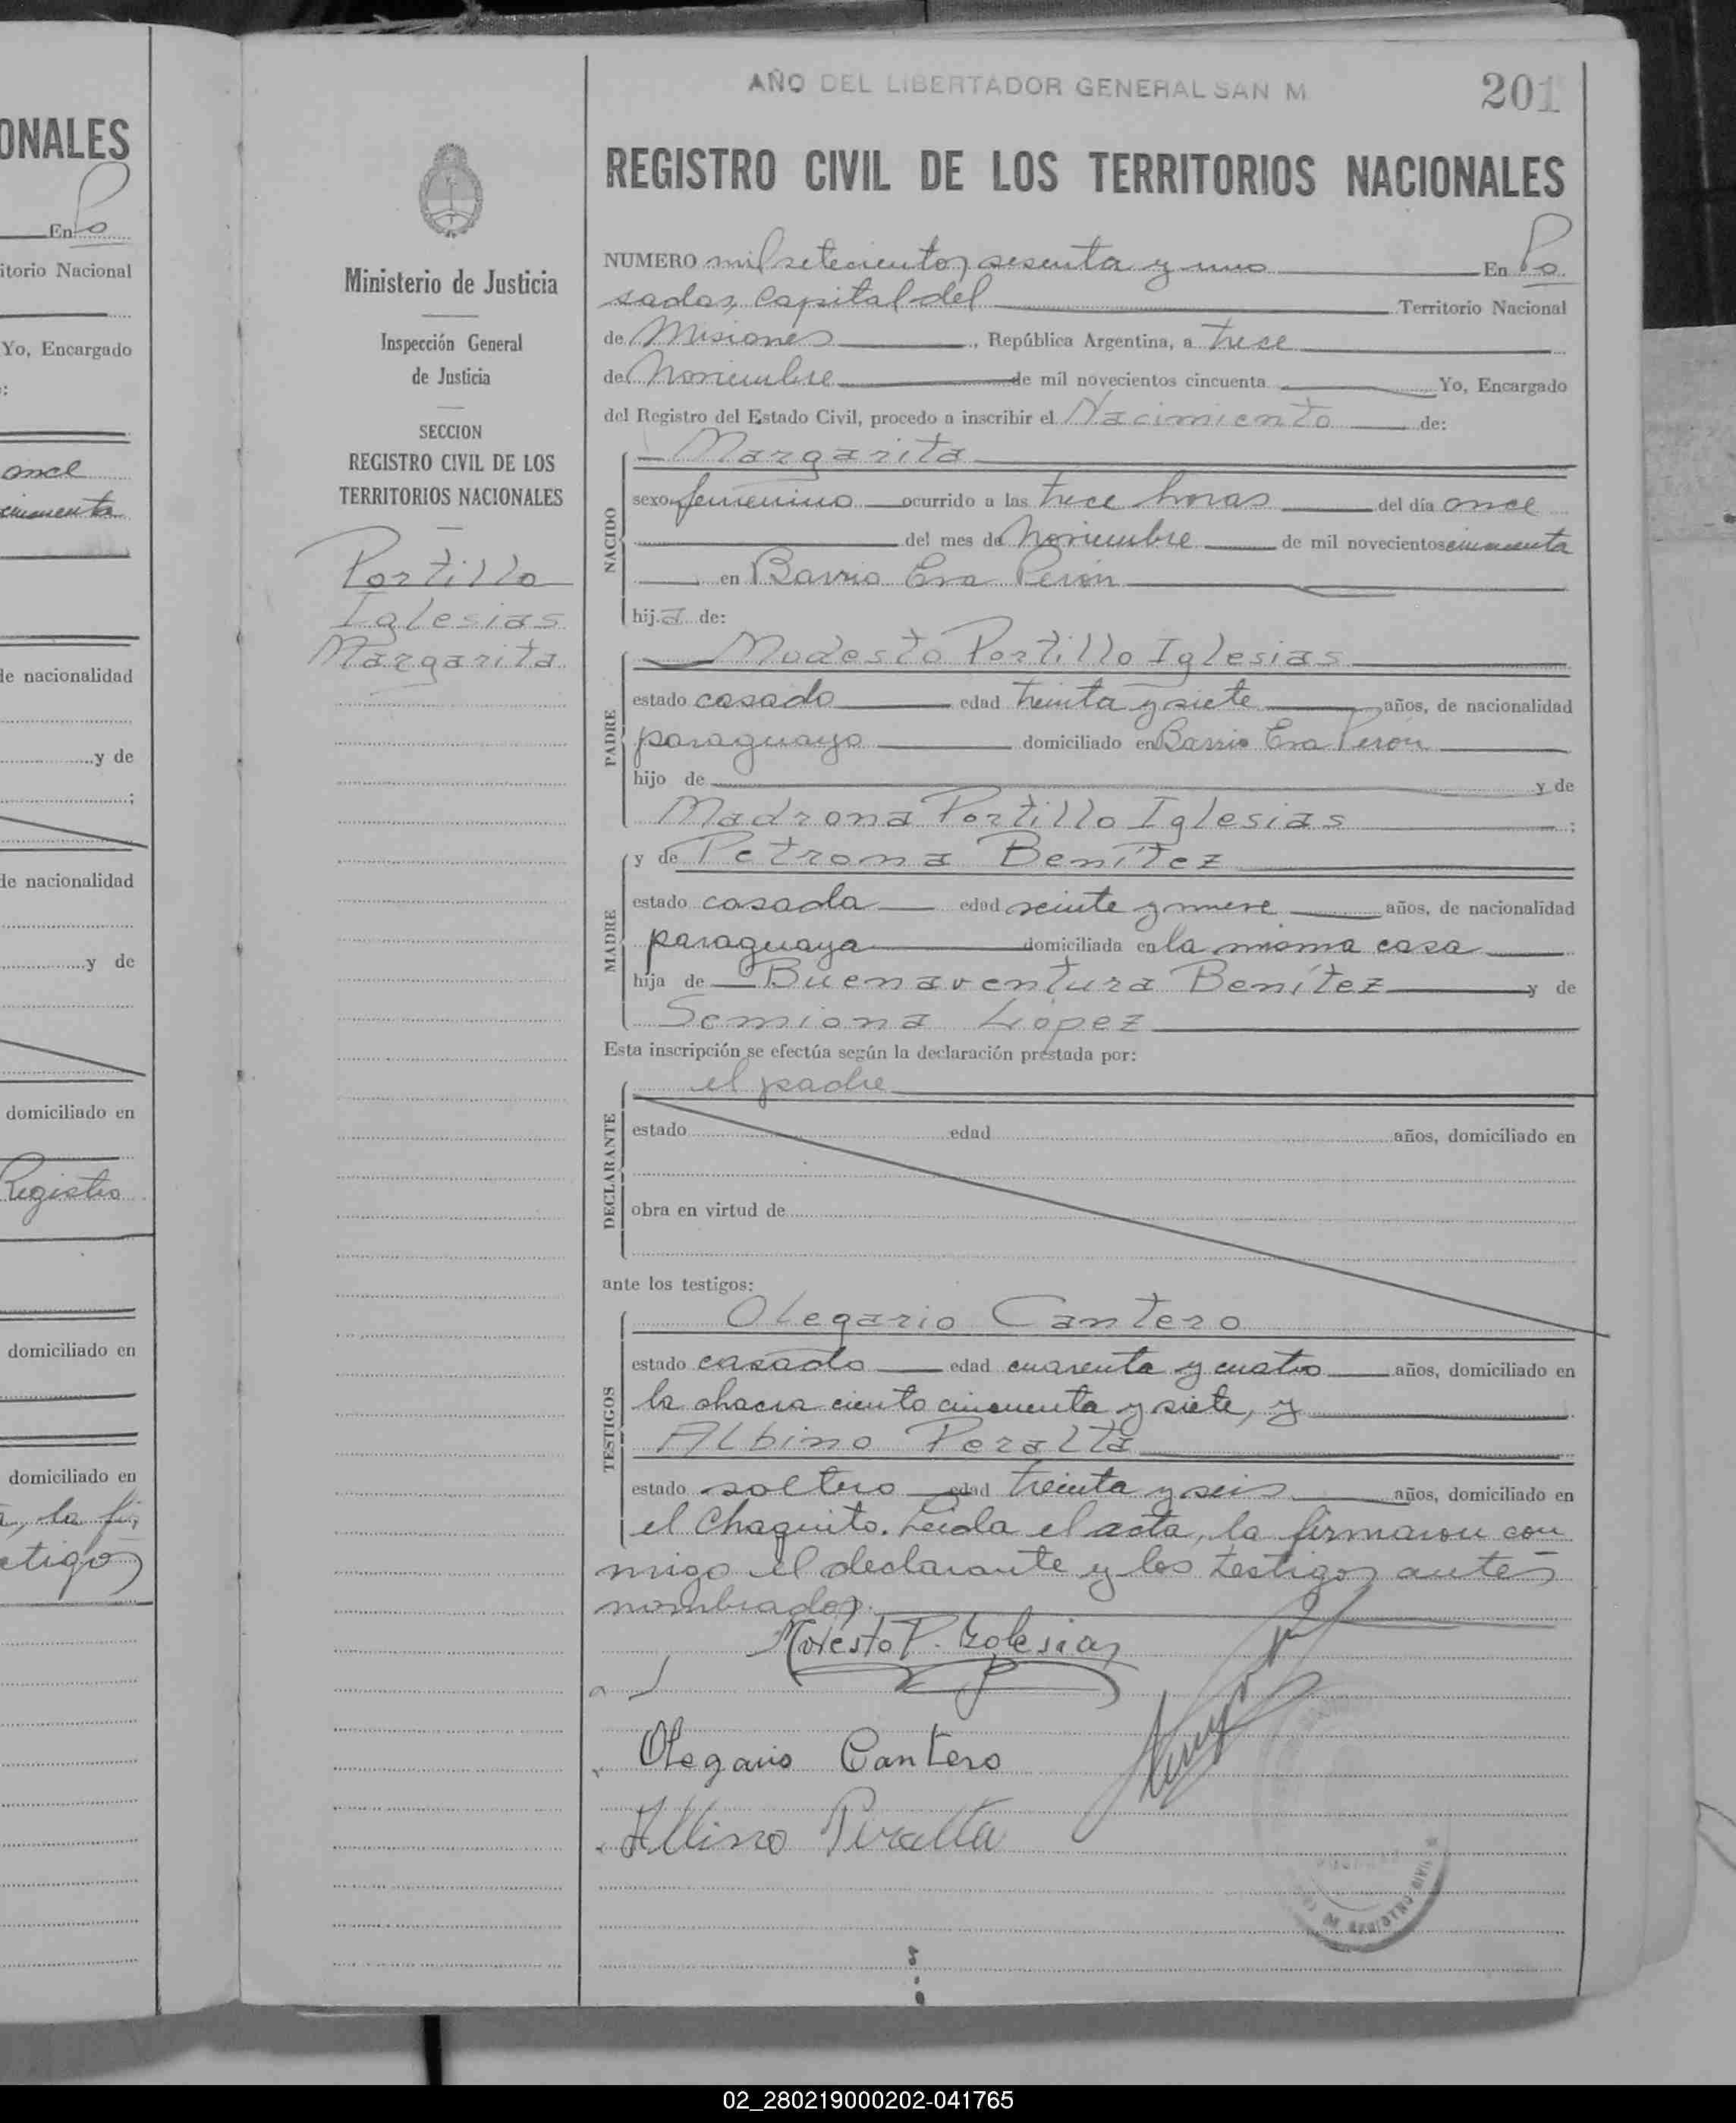 ONALES
En Po
itorio Nacional
Yo, Encargado
:
once
cincuenta
de nacionalidad
y de
;
de nacionalidad
y de
domiciliado en
Registro
domiciliado en
domiciliado en
a, la fir
stigos
Ministerio de Justicia
Inspección General
de Justicia
SECCION
REGISTRO CIVIL DE LOS
TERRITORIOS NACIONALES
Portillo
Iglesias
Margarita
AÑO DEL LIBERTADOR GENERAL SAN M
201
REGISTRO CIVIL DE LOS TERRITORIOS NACIONALES
NUMERO mil setecientos sesenta y uno En Po
sadas, capital del Territorio Nacional
de Misiones, República Argentina, a trece
de Noviembre de mil novecientos cincuenta Yo, Encargado
del Registro del Estado Civil, procedo a inscribir el Nacimiento de:
Margarita
NACIDO
sexo femenino ocurrido a las trece horas del día once
del mes de Noviembre de mil novecientos cincuenta
en Barrio Eva Perón
hija de:
Modesto Portillo Iglesias
PADRE
estado casado edad treinta y siete años, de nacionalidad
paraguayo domiciliado en Barrio Eva Perón
hijo de y de
Madrona Portillo Iglesias ;
y de Petrona Benítez
MADRE
estado casada edad veinte y nueve años, de nacionalidad
paraguaya domiciliada en la misma casa
hija de Buenaventura Benítez y de
Semiona López
Esta inscripción se efectúa según la declaración prestada por:
el padre
DECLARANTE
estado edad años, domiciliado en
obra en virtud de
ante los testigos:
Olegario Cantero
TESTIGOS
estado casado edad cuarenta y cuatro años, domiciliado en
la chacra ciento cincuenta y siete, y
Albino Peralta
estado soltero edad treinta y seis años, domiciliado en
el Chaquito. Leida el acta, la firmaron con
migo el declarante y los testigos antes
nombrados.
Modesto P. Yglesias
Olegario Cantero
Albino Peralta
REGISTRO CIVIL
02_280219000202-041765